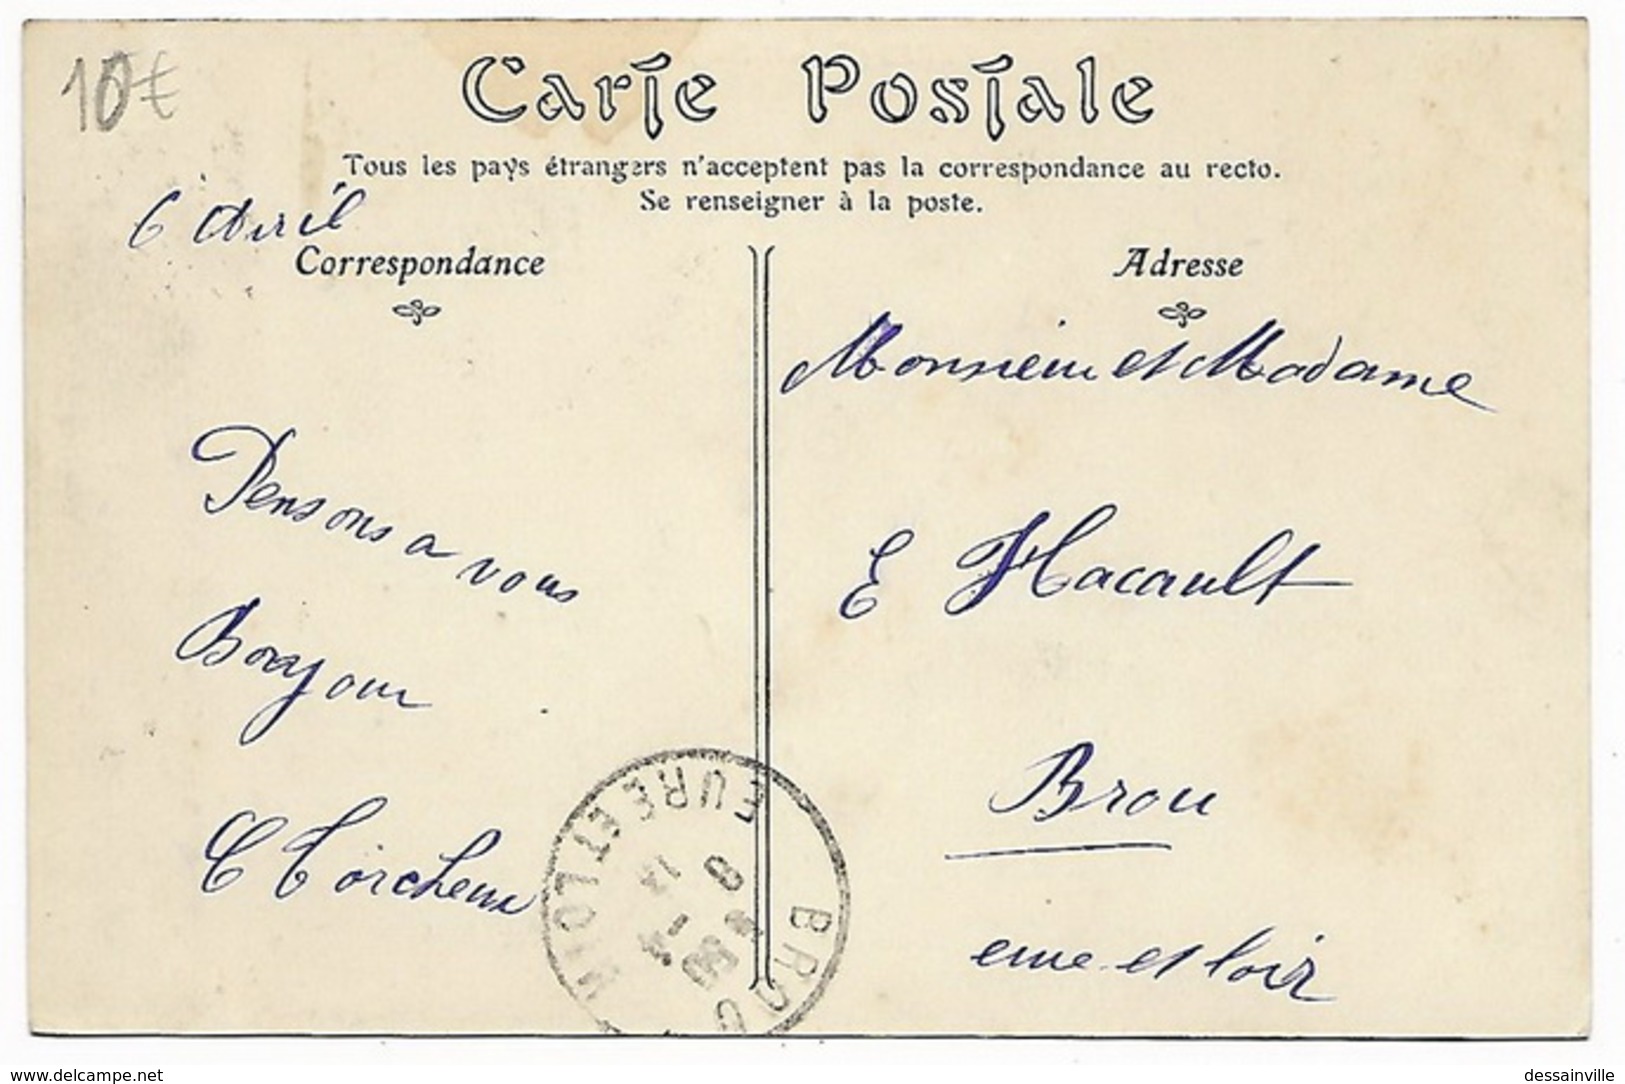 10€
Carte Postale
Tous les pays étrangers n'acceptent pas la correspondance au recto.
Se renseigner à la poste.
6 Avril
Correspondance
Pensons a vous
Bonjour
Adresse
Monsieur et Madame
E Hacault
Brou
eure et loir
BROU
EURE ET LOIR
www.delcampe.net
dessainville